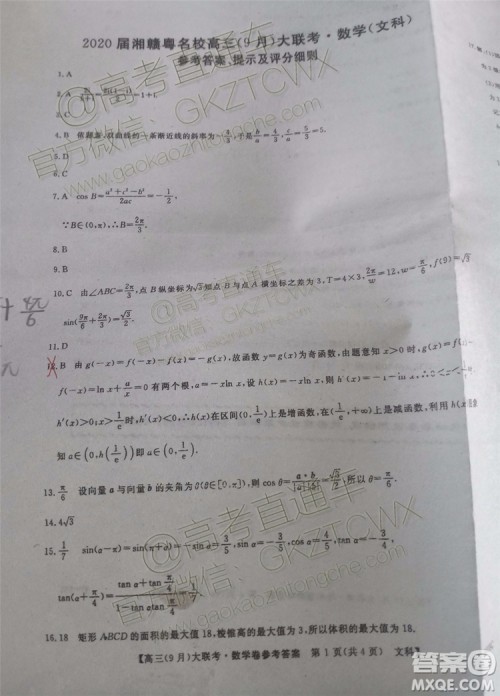 2020届湘赣粤名校高三(9月)大联考·数学(文科)
参考答案、提示及评分细则
1. A
2. A
3. C
4. B
5. D
6. C
7. A cos B=(a²+c²-b²)/2ac=-1/2,
∵B∈(0,π),∴B=2π/3.
8. B
9. B
10. C 由∠ABC=2π/3,点B纵坐标为√3知点B与点A横坐标之差为3,T=4×3,2π/w=12,w=π/6,f(9)=√3
sin(9π/6+2π/3)=√3/2
11. D
12. B 由g(-x)=f(-x)-f(x)=-g(x),故函数y=g(x)为奇函数,由题意知x>0时,g(x)=
f(-x)=ln x+a/x=0有两个根,a=-xln x,设h(x)=-xln x,则h'(x)=-1-ln x,
h'(x)>0;x>1/e时,h'(x)<0,∴h(x)在区间(0,1/e)上是增函数,在(1/e,+∞)上是减函数,利用h(x)
知a∈(0,h(1/e)),即a∈(0,1/e).
13. π/6 设向量a与向量b的夹角为θ(θ∈[0,π]),则cos θ=a·b/|a|·|b|=√3/2,所以θ=π/6.
14. 4√3
15. 1/7 sin(α-π)=sin(π+α)=-sin α=3/5,sin α=-3/5,cos α=4/5,tan α=-3/4,
tan(α+π/4)=(tan α+tan π/4)/(1-tan α tan π/4)=1/7.
16. 18 矩形ABCD的面积的最大值18,棱锥高的最大值为3,所以体积的最大值为18.
【高三(9月)大联考·数学卷参考答案 第1页(共4页) 文科】
@高考直通车
官方微信:GKZTCWX
www.gaokaozhitongche.com
作业帮